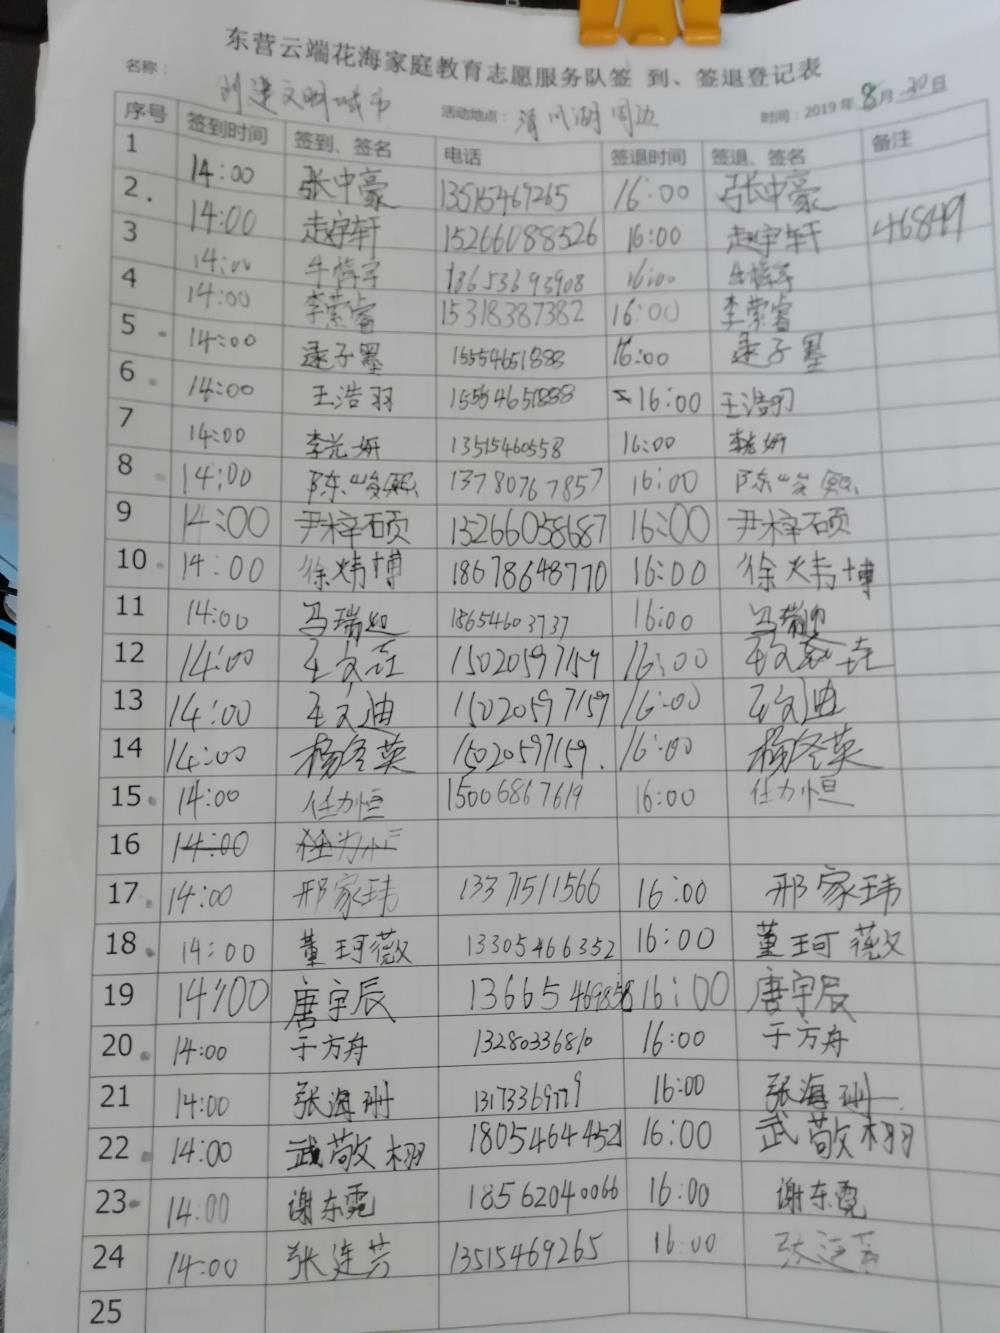 东营云端花海家庭教育志愿服务队签 到、签退登记表
名称： 创建文明城市 活动地点：清风湖周边 时间：2019年8月30日
序号 签到时间 签到、签名 电话 签退时间 签退、签名 备注
1 14:00 张中豪 13515469265 16:00 张中豪
2 14:00 赵宇轩 15266088526 16:00 赵宇轩 46849
3 14:00 牛梓宇 18653693908 16:00 牛梓宇
4 14:00 李萦睿 15318387382 16:00 李萦睿
5 14:00 逯子墨 15554651888 16:00 逯子墨
6 14:00 王浩羽 15554651888 16:00 王浩羽
7 14:00 李光妍 13515460558 16:00
8 14:00 陈 熙 13780767857 16:00 陈
9 14:00 尹梓硕 13266058687 16:00 尹梓硕
10 14:00 徐炜博 18678648770 16:00 徐炜博
11 14:00 马瑞 18654603737 16:00 马瑞
12 14:00 王文 15020597159 16:00
13 14:00 王文迪 15020597159 16:00 王文迪
14 14:00 杨冬英 15020597159. 16:00 杨冬英
15 14:00 任力恒 15006867619 16:00 任力恒
16 14:00
17 14:00 邢家玮 13371511566 16:00 邢家玮
18 14:00 董珂薇 13305466352 16:00 董珂薇
19 14:00 唐宇辰 13665469858 16:00 唐宇辰
20 14:00 于方舟 13280336810 16:00 于方舟
21 14:00 张海珊 13173369779 16:00 张海珊
22 14:00 武敬栩 18054644521 16:00 武敬栩
23 14:00 谢东霓 18562040066 16:00 谢东霓
24 14:00 张连芳 13515469265 16:00 张连芳
25